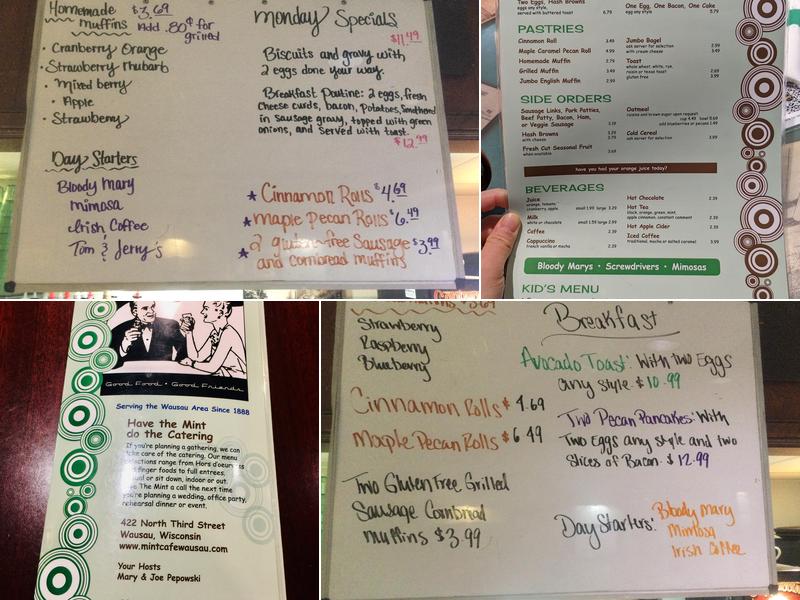 Homemade $3.69
muffins Add .80¢ for
grilled
• Cranberry Orange
• Strawberry Rhubarb
• Mixed berry
• Apple
• Strawberry
Day Starters
Bloody Mary
mimosa
Irish Coffee
Tom & Jerry's
Monday Specials
$11.49
Biscuits and gravy with
2 eggs done your way.
Breakfast Poutine: 2 eggs, fresh
cheese curds, bacon, potatoes, smothered
in sausage gravy, topped with green
onions, and served with toast.
$12.99
★ Cinnamon Rolls $4.69
★ maple Pecan Rolls $6.49
★ 2 gluten-free Sausage $3.99
and cornbread muffins
Two Eggs, Hash Browns
eggs any style,
served with buttered toast 6.79
One Egg, One Bacon, One Cake
egg any style 5.79
PASTRIES
Cinnamon Roll 3.49
Maple Caramel Pecan Roll 4.99
Homemade Muffin 2.79
Grilled Muffin 3.49
Jumbo English Muffin 2.99
Jumbo Bagel
ask server for selection 2.99
with cream cheese 3.49
Toast
whole wheat, white, rye,
raisin or texas toast 2.69
gluten free 3.99
SIDE ORDERS
Sausage Links, Pork Patties,
Beef Patty, Bacon, Ham,
or Veggie Sausage 3.39
Hash Browns 3.29
with cheese 3.79
Fresh Cut Seasonal Fruit
when available 3.69
Oatmeal
raisins and brown sugar upon request
cup 4.49 bowl 5.69
add blueberries or pecans 1.49
Cold Cereal
ask server for selection 3.99
have you had your orange juice today?
BEVERAGES
Juice
orange, tomato,
cranberry, apple small 1.99 large 3.29
Milk
white or chocolate small 1.59 large 2.99
Coffee 2.39
Cappuccino
french vanilla or mocha 2.39
Hot Chocolate 2.39
Hot Tea
black, orange, green, mint,
apple cinnamon, constant comment 2.39
Hot Apple Cider 2.39
Iced Coffee
traditional, mocha or salted caramel 3.99
Bloody Marys • Screwdrivers • Mimosas
KID'S MENU
Good Food • Good Friends
Serving the Wausau Area Since 1888
Have the Mint
do the Catering
If you're planning a gathering, we can
take care of the catering. Our menu
options range from Hors d'oeuvres
finger foods to full entrees,
or sit down, indoor or out.
The Mint a call the next time
you're planning a wedding, office party,
rehearsal dinner or event.
422 North Third Street
Wausau, Wisconsin
www.mintcafewausau.com
Your Hosts
Mary & Joe Pepowski
Strawberry
Raspberry
Blueberry
Cinnamon Rolls $4.69
maple Pecan Rolls $6.49
Two Gluten Free Grilled
Sausage Cornbread
muffins $3.99
Breakfast
Avocado Toast: With Two Eggs
any style $10.99
Two Pecan Pancakes: With
Two Eggs any style and two
Slices of Bacon $12.99
Day Starters: Bloody Mary
Mimosa
Irish Coffee